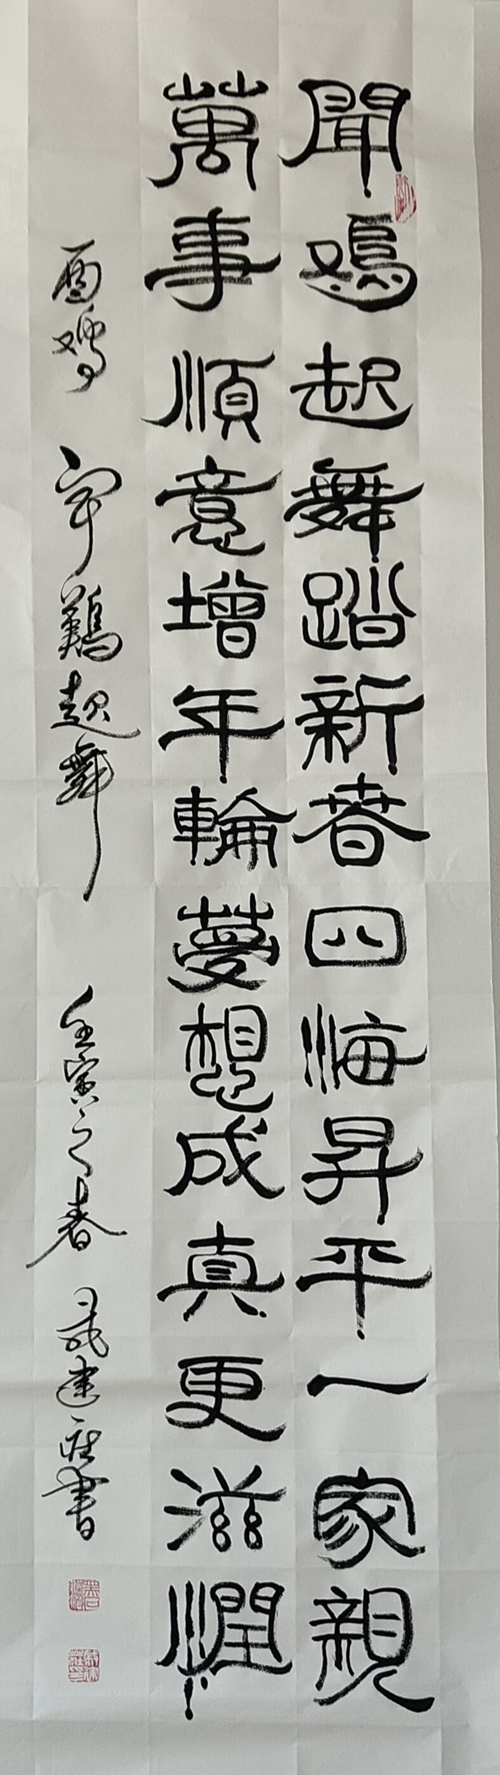 聞鳮起舞踏新春四海昇平一家親
萬事順意增年輪夢想成真更滋潤
酉鸡 字鷄起舞 壬寅之春 建 書